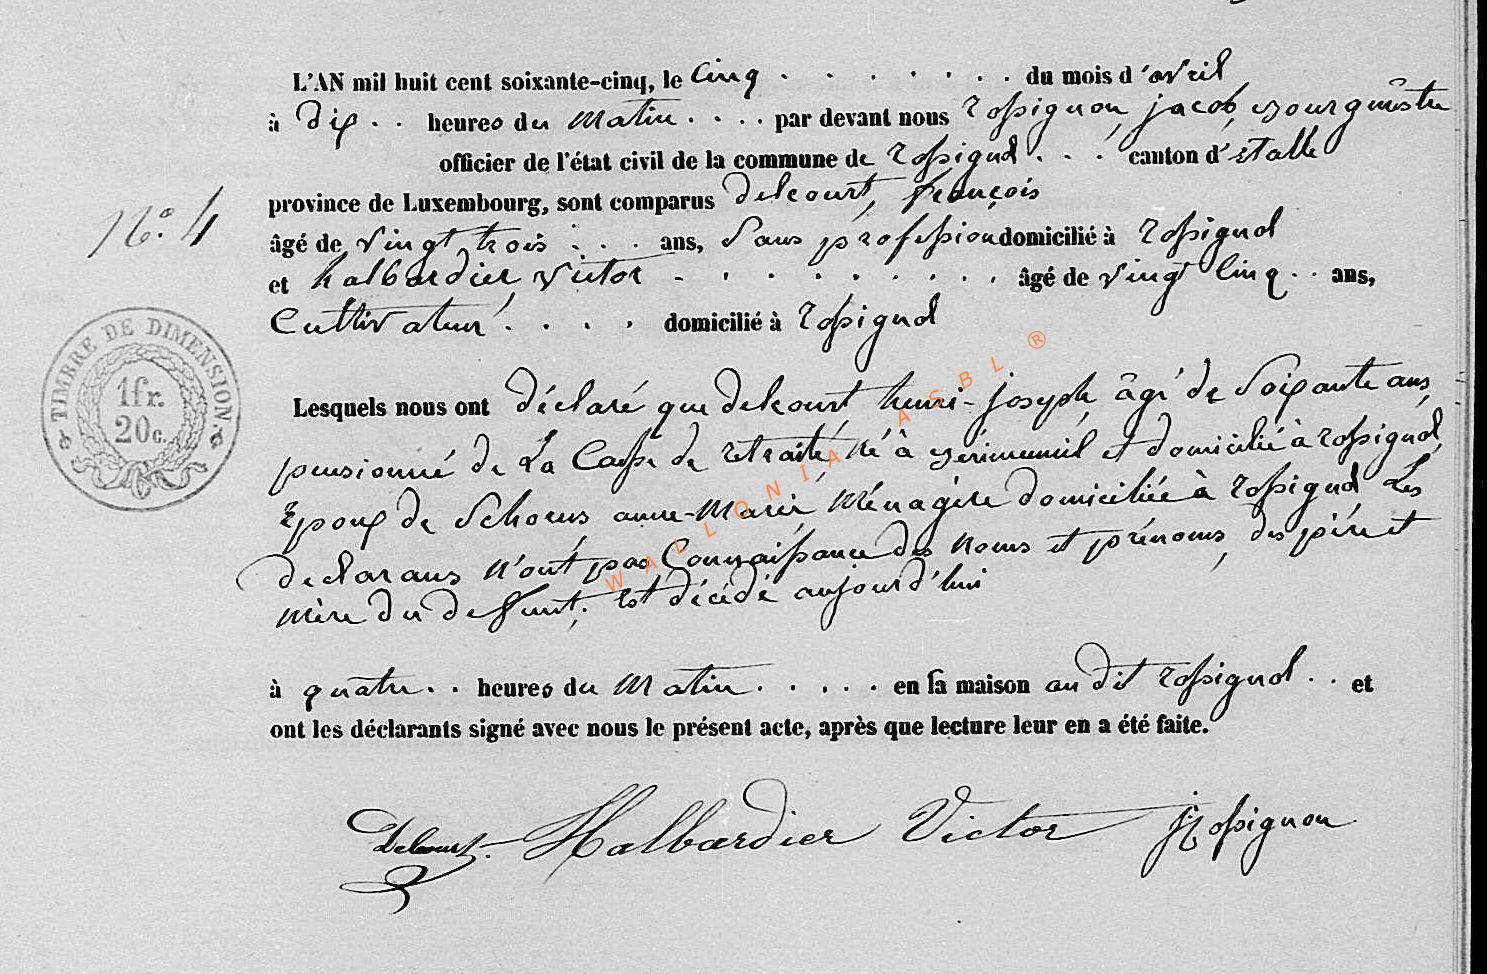 L'AN mil huit cent soixante-cinq, le Cinq . . . . . . . . du mois d'avril
à dix . . heures du matin . . . . par devant nous rossignon, jacob, bourgmestre
officier de l'état civil de la commune de rossignol . . . canton d'étalle
province de Luxembourg, sont comparus delcourt, françois
N° 4
âgé de vingt trois . . . ans, Sans profession domicilié à rossignol
et halbardier, victor . . . . . . . . . âgé de vingt Cinq . . ans,
Cultivateur . . . . domicilié à rossignol
TIMBRE DE DIMENSION
1fr.
20c.
Lesquels nous ont déclaré que delcourt, henri-joseph, âgé de Soixante ans,
pensionné de la Caisse de retraite, né à et domicilié à rossignol,
Epoux de Schoeus anne-Marie, Ménagère domiciliée à rossignol Les
declarans n'ont pas Connaissance des noms et prénoms, des père et
mère du defunt; est décédé aujourd'hui
à quatre . . heures du matin . . . . . en sa maison au dit rossignol . . et
ont les déclarants signé avec nous le présent acte, après que lecture leur en a été faite.
Delcourt. Halbardier Victor J Rossignon
WALLONIA ASBL ®